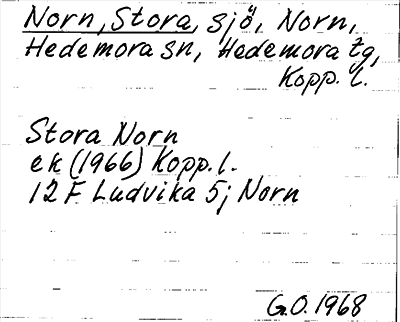 Norn, Stora, sjö, Norn,
Hedemora sn, Hedemora tg,
Kopp. l.
Stora Norn
ek (1966) Kopp. l.
12 F Ludvika 5j Norn
G.O. 1968